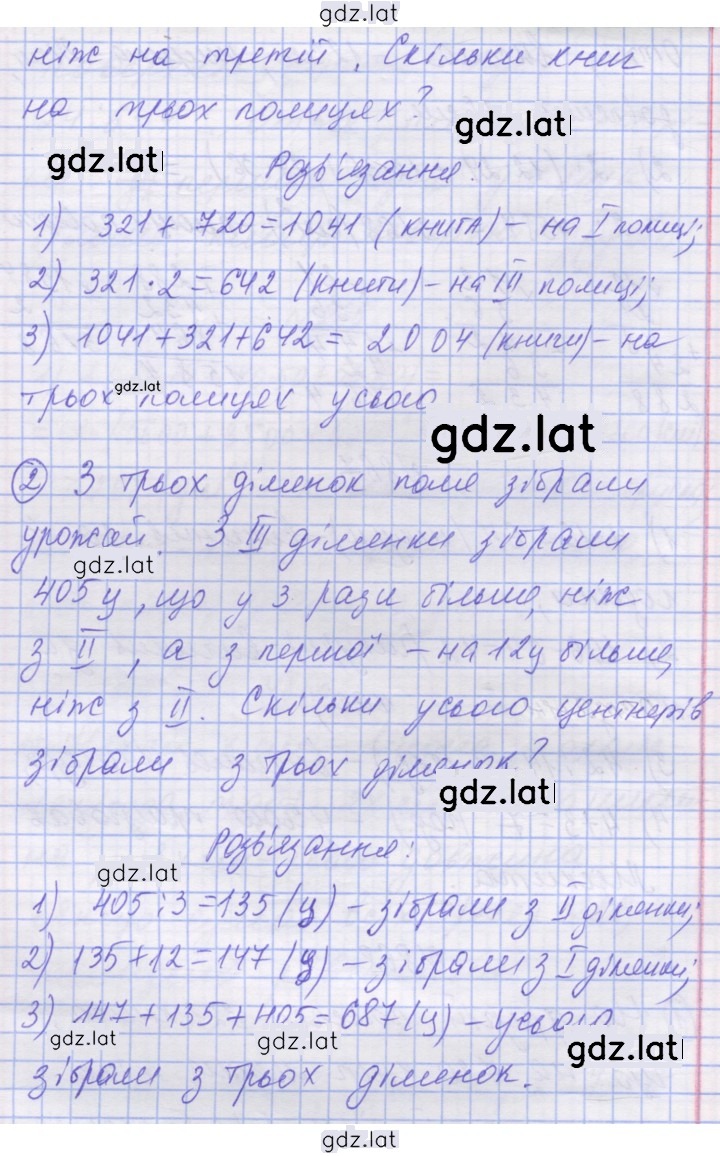 gdz.lat
ніж на третій. Скільки книг
на трьох полицях?
gdz.lat
gdz.lat
Розв'язання:
1) 321+720=1041 (книга) – на I полиці;
2) 321·2=642 (книги) – на III полиці;
3) 1041+321+642= 2004 (книги) – на
gdz.lat
трьох полицях усього
gdz.lat
2 З трьох ділянок поля зібрали
урожай. З III ділянки зібрали
gdz.lat
405 ц, що у 3 рази більше, ніж
з II, а з першої – на 12ц більше,
ніж з II. Скільки усього центнерів
зібрали з трьох ділянок?
gdz.lat
Розв'язання:
gdz.lat
1) 405:3=135 (ц) – зібрали з II ділянки;
2) 135+12=147 (ц) – зібрали з I ділянки;
3) 147+135+405=687 (ц) – усього
gdz.lat
gdz.lat
gdz.lat
зібрали з трьох ділянок.
gdz.lat